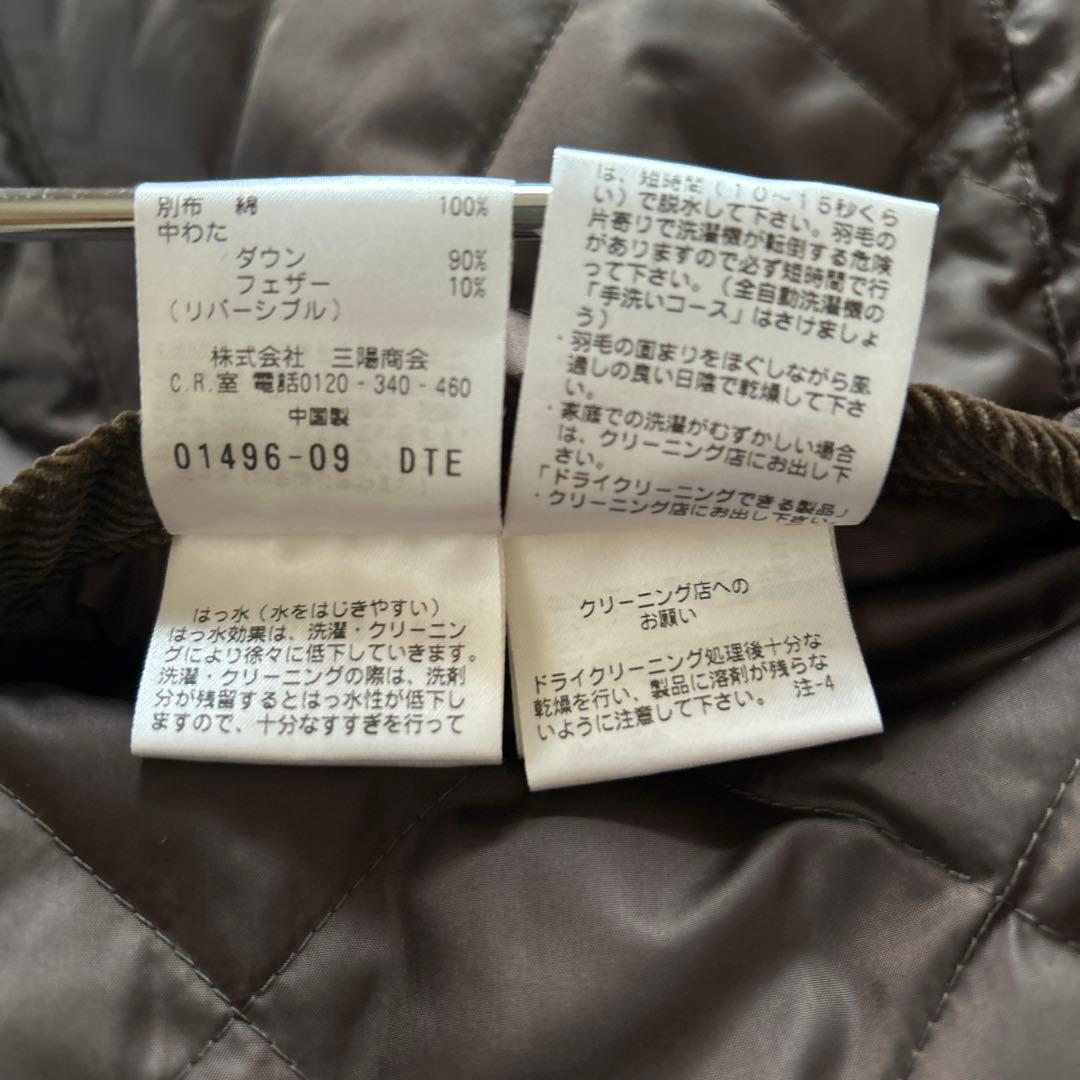 別布 綿 100%
中わた
ダウン 90%
フェザー 10%
(リバーシブル)
株式会社 三陽商会
C.R.室 電話0120-340-460
中国製
01496-09 DTE
はっ水(水をはじきやすい)
はっ水効果は、洗濯・クリーニン
グにより徐々に低下していきます。
洗濯・クリーニングの際は、洗剤
分が残留するとはっ水性が低下し
ますので、十分なすすぎを行って
は、短時間(10〜15秒くら
い)で脱水して下さい。羽毛の
片寄りで洗濯機が転倒する危険
がありますので必ず短時間で行
って下さい。(全自動洗濯機の
「手洗いコース」はさけましょ
う)
・羽毛の固まりをほぐしながら風
通しの良い日陰で乾燥して下さ
い。
・家庭での洗濯がむずかしい場合
は、クリーニング店にお出し下
さい。
「ドライクリーニングできる製品」
・クリーニング店にお出し下さい。
クリーニング店への
お願い
ドライクリーニング処理後十分な
乾燥を行い、製品に溶剤が残らな
いように注意して下さい。 注-4